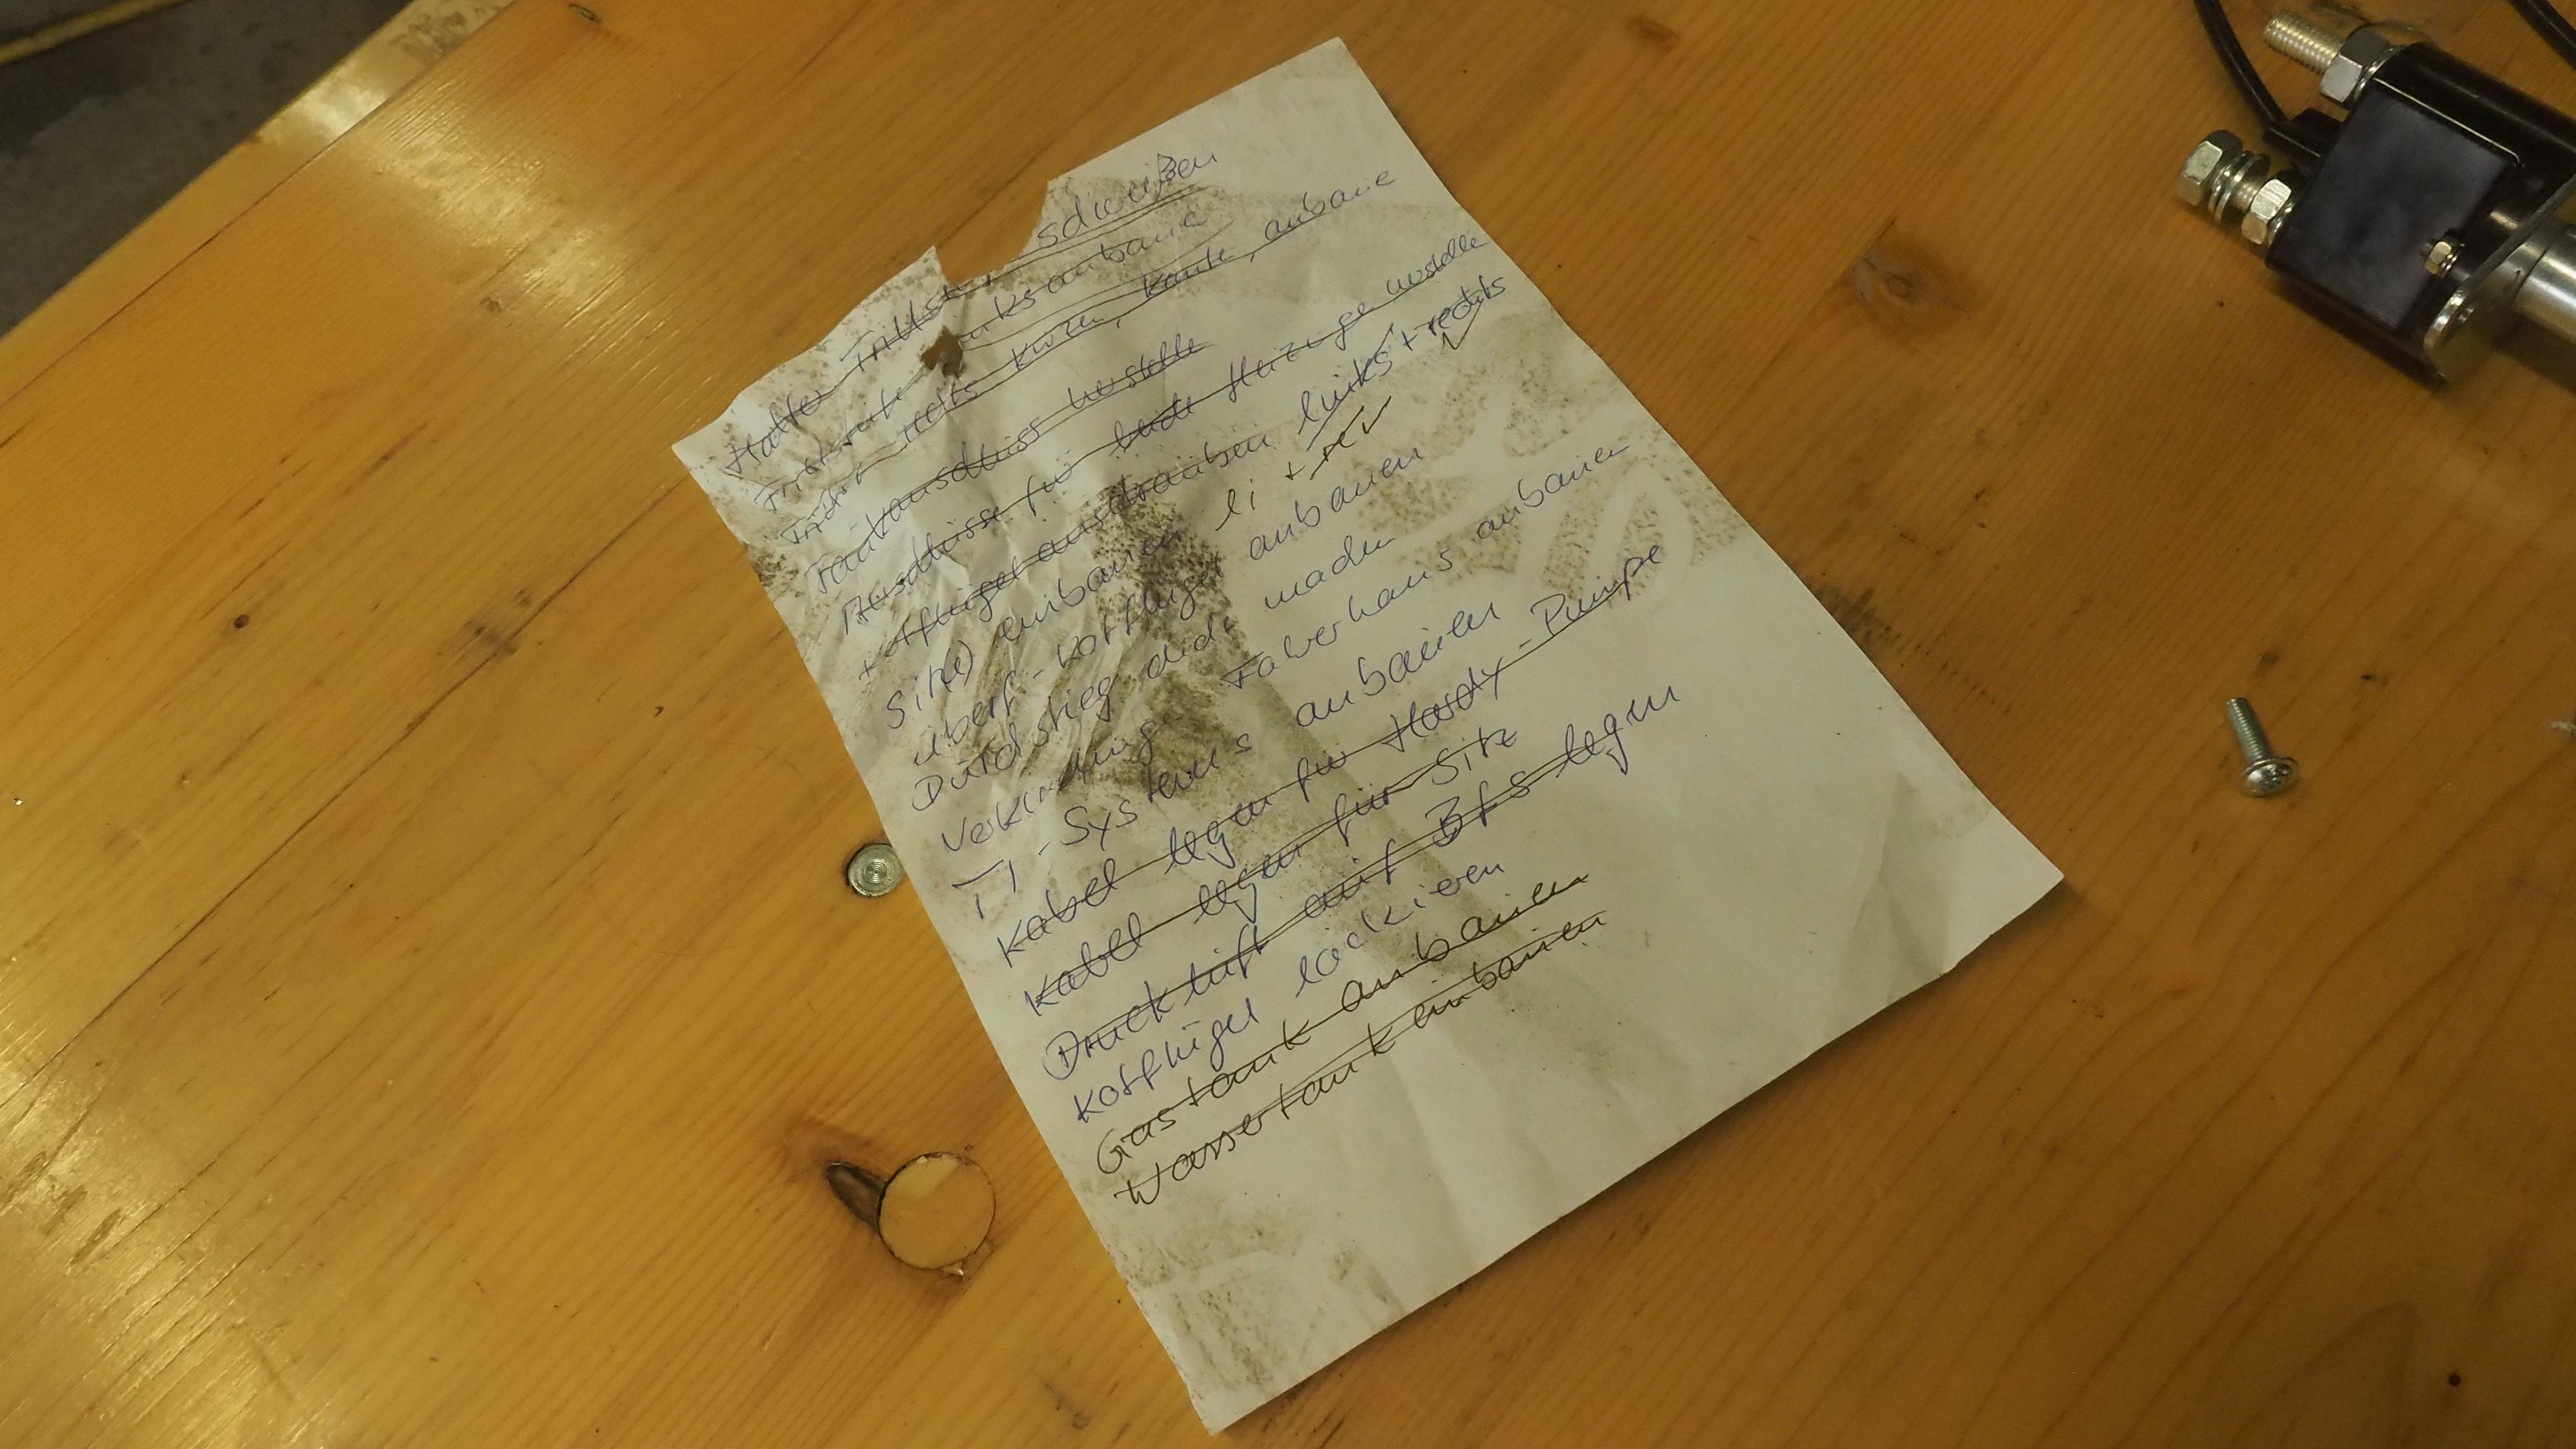 Halter Tritts schweißen
Trittstufe links anbaue
Tritt rechts kürzen, Kante, anbaue
Tankanschluss herstelle
Anschlüsse für beide Heizunge herstelle
Kotflügel anschrauben links + rechts
Sitz(e) einbauen li + re
überf-Kotflügel anbauen
Durchstieg dicht machen
Verkleidung Faherhaus anbauen
T1-Systems anbauen
Kabel legen für Hardy-Pumpe
Kabel legen für Sitz
Druckluft auf Bfs legen
Kotflügel lackieren
Gastank anbauen
Wassertank einbauen